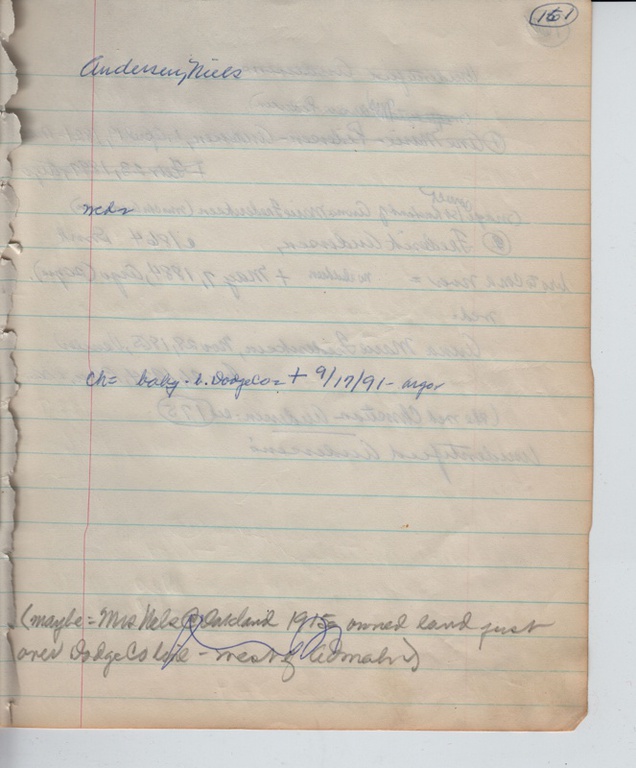 161
Andersen, Niels
weds
ch= baby - b. Dodge Co = + 9/17/91 -
(maybe = Mrs Nels @ Oakland 1915 owned land just
over Dodge Co line - west of